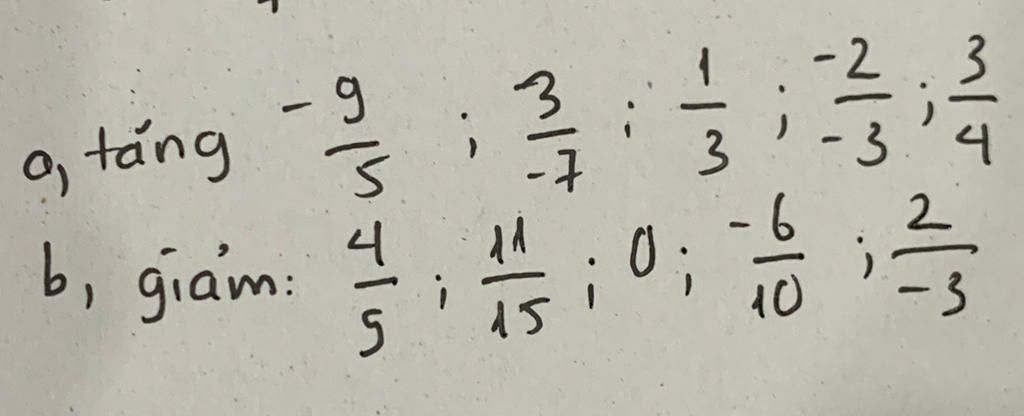 a, tăng -9/5 ; 3/-7 ; 1/3 ; -2/-3 ; 3/4
b, giảm: 4/5 ; 11/15 ; 0 ; -6/10 ; 2/-3